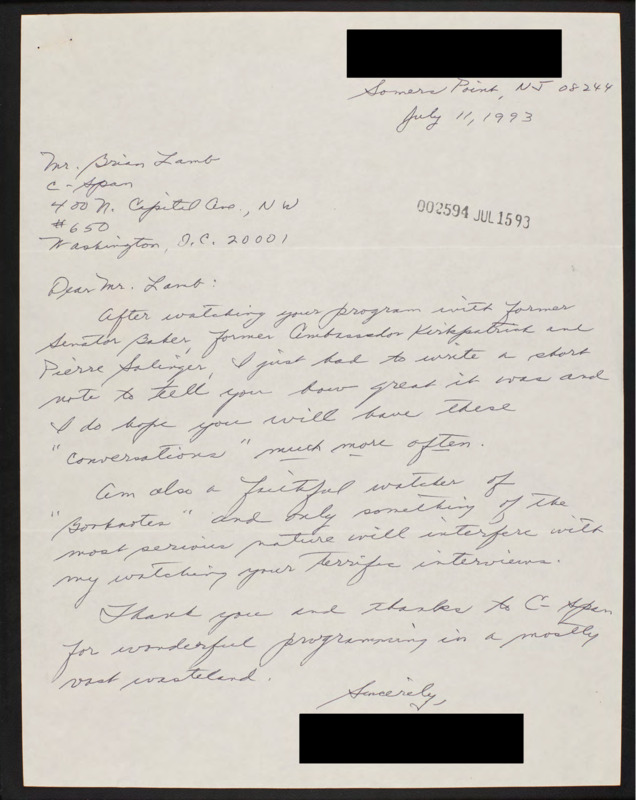 Somers Point, NJ 08244
July 11, 1993
Mr. Brian Lamb
C-Span
400 N. Capitol Ave., NW
#650
Washington, D.C. 20001
002594 JUL 15 93
Dear Mr. Lamb:
After watching your program with former
Senator Baker, former Ambassador Kirkpatrick and
Pierre Salinger, I just had to write a short
note to tell you how great it was and
I do hope you will have these
"conversations" much more often.
Am also a faithful watcher of
"Booknotes" and only something of the
most serious nature will interfere with
my watching your terrific interviews.
Thank you and thanks to C-Span
for wonderful programming in a mostly
vast wasteland.
Sincerely,